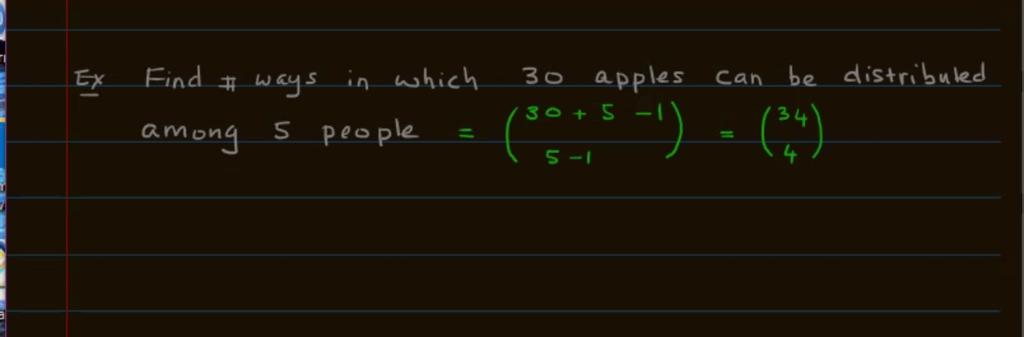 Ex Find # ways in which 30 apples can be distributed
among 5 people = (30 + 5 - 1 / 5 - 1) = (34 / 4)